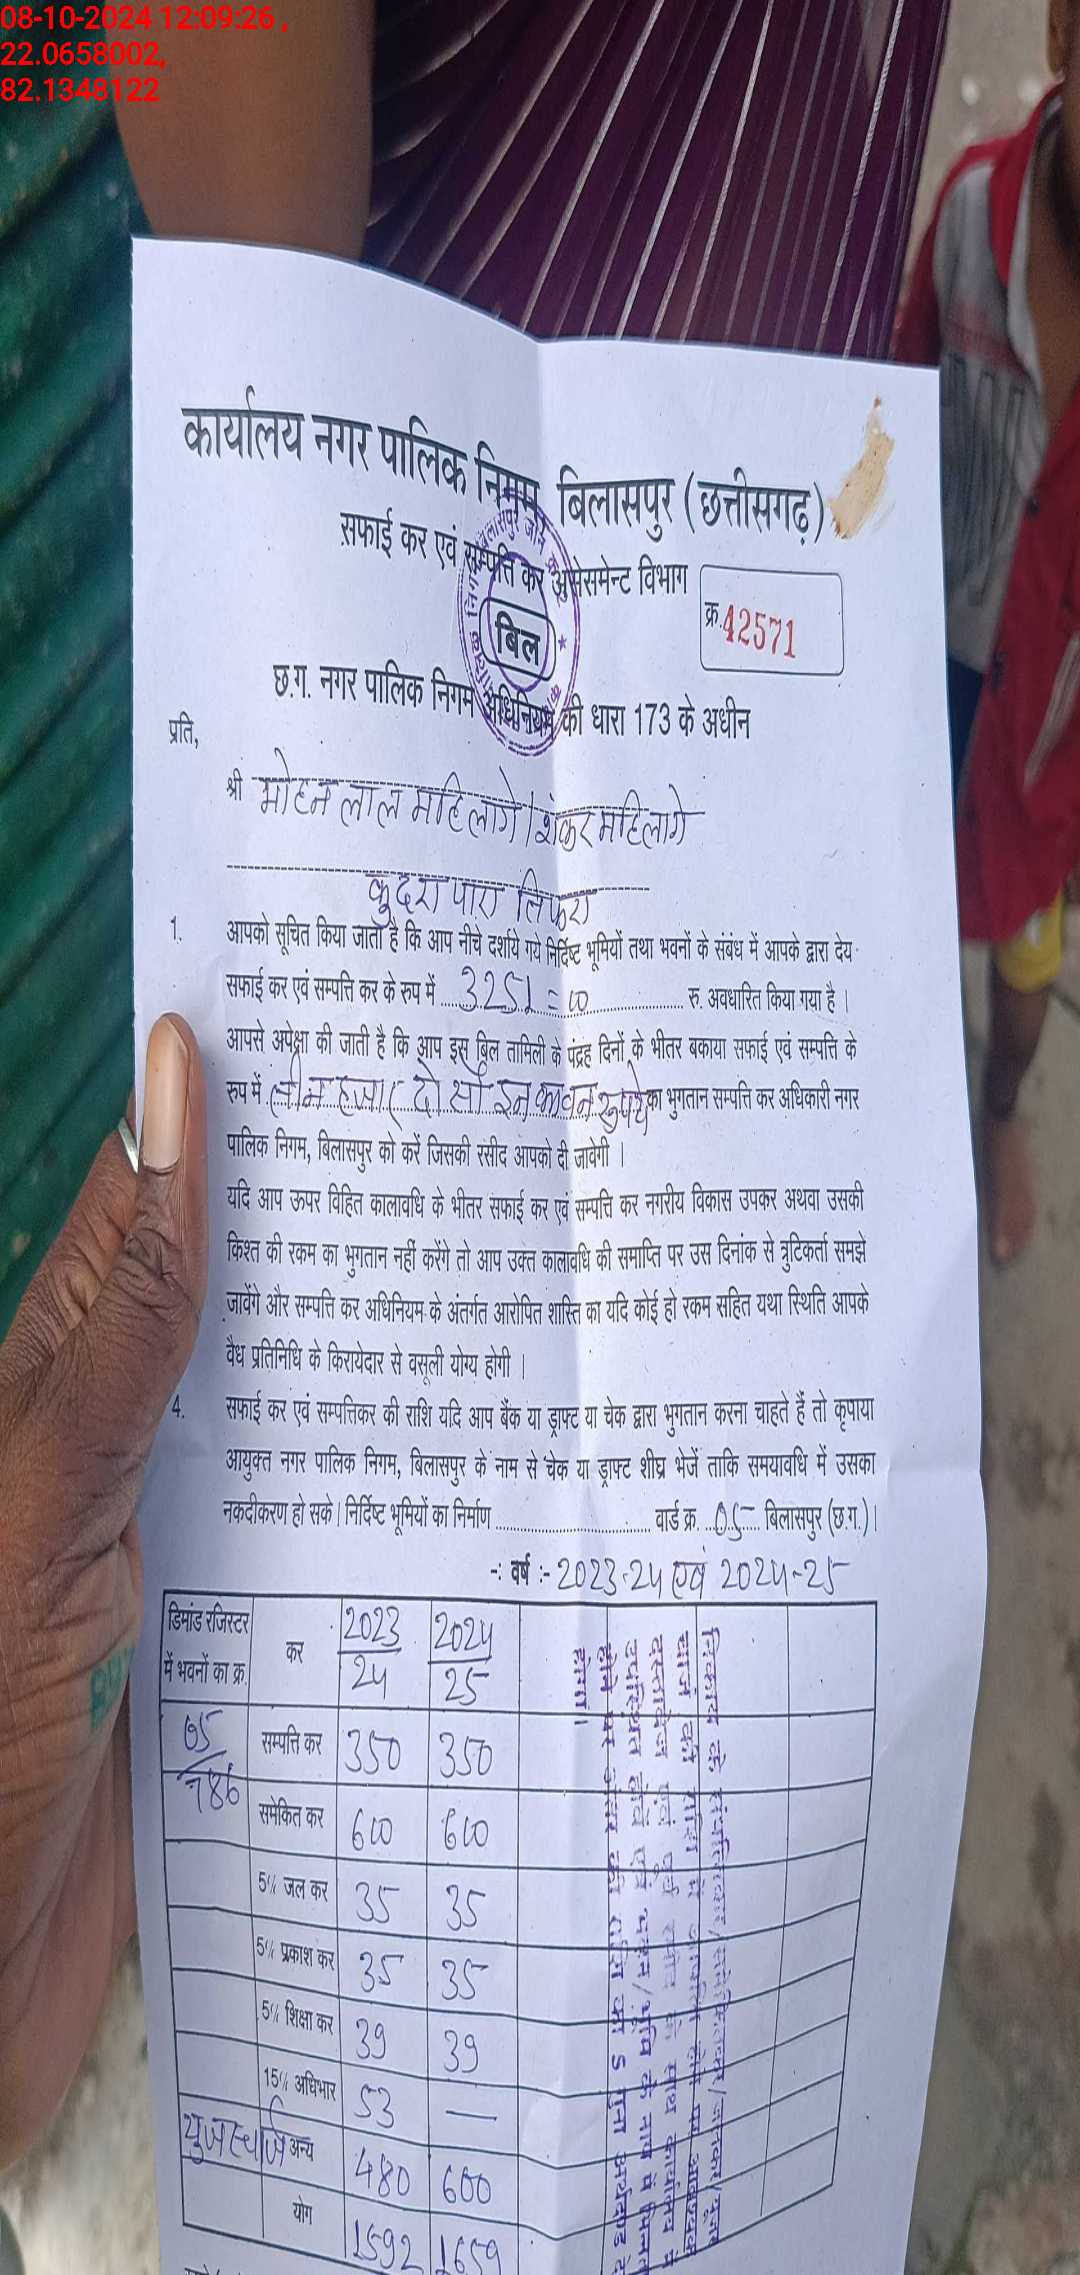 08-10-2024 12:09:26 ,
22.0658002,
82.1348122
कार्यालय नगर पालिक निगम, बिलासपुर (छत्तीसगढ़)
सफाई कर एवं सम्पत्ति कर असेसमेन्ट विभाग
बिल
क्र. 42571
छ.ग. नगर पालिक निगम अधिनियम की धारा 173 के अधीन
प्रति,
श्री मोहन लाल महिलागे / शंकर महिलागे
कुदरा पारा तिफरा
1. आपको सूचित किया जाता है कि आप नीचे दर्शाये गये निर्दिष्ट भूमियों तथा भवनों के संबंध में आपके द्वारा देय
सफाई कर एवं सम्पत्ति कर के रुप में 3251=00 रु. अवधारित किया गया है ।
आपसे अपेक्षा की जाती है कि आप इस बिल तामिली के पंद्रह दिनों के भीतर बकाया सफाई एवं सम्पत्ति के
रुप में तीन हजार दो सौ इन कावन रुपये का भुगतान सम्पत्ति कर अधिकारी नगर
पालिक निगम, बिलासपुर को करें जिसकी रसीद आपको दी जावेगी ।
यदि आप ऊपर विहित कालावधि के भीतर सफाई कर एवं सम्पत्ति कर नगरीय विकास उपकर अथवा उसकी
किश्त की रकम का भुगतान नहीं करेंगे तो आप उक्त कालावधि की समाप्ति पर उस दिनांक से त्रुटिकर्ता समझे
जावेंगे और सम्पत्ति कर अधिनियम के अंतर्गत आरोपित शास्ति का यदि कोई हो रकम सहित यथा स्थिति आपके
वैध प्रतिनिधि के किरायेदार से वसूली योग्य होगी ।
4. सफाई कर एवं सम्पत्तिकर की राशि यदि आप बैंक या ड्राफ्ट या चेक द्वारा भुगतान करना चाहते हैं तो कृपाया
आयुक्त नगर पालिक निगम, बिलासपुर के नाम से चेक या ड्राफ्ट शीघ्र भेजें ताकि समयावधि में उसका
नकदीकरण हो सके । निर्दिष्ट भूमियों का निर्माण वार्ड क्र. 05 बिलासपुर (छ.ग.) ।
-: वर्ष :- 2023-24 एवं 2024-25
डिमांड रजिस्टर में भवनों का क्र. कर 2023/24 2024/25
05/786 सम्पत्ति कर 350 350
समेकित कर 600 600
5% जल कर 35 35
5% प्रकाश कर 35 35
5% शिक्षा कर 39 39
15% अधिभार 53 —
युजर चार्ज अन्य 480 600
योग 1592 1659